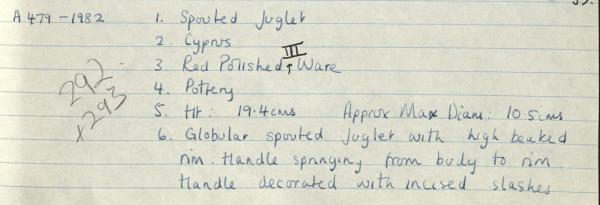 A479-1982 1. Spouted Juglet
2. Cyprus
3. Red Polished ↑ III Ware
4. Pottery
292
x293
5. Ht: 19.4cms Approx Max Diam: 10.5cms
6. Globular spouted juglet with high beaked
rim. Handle springing from body to rim
Handle decorated with incised slashes